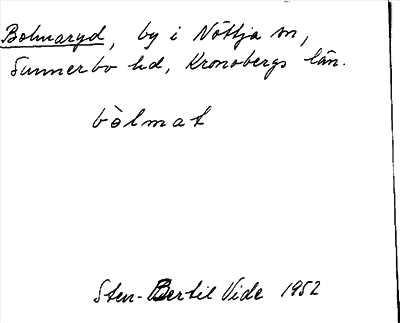 Bolmaryd, by i Nöttja sn,
Sunnerbo hd, Kronobergs län.
bòlmat
Sten-Bertil Vide 1952